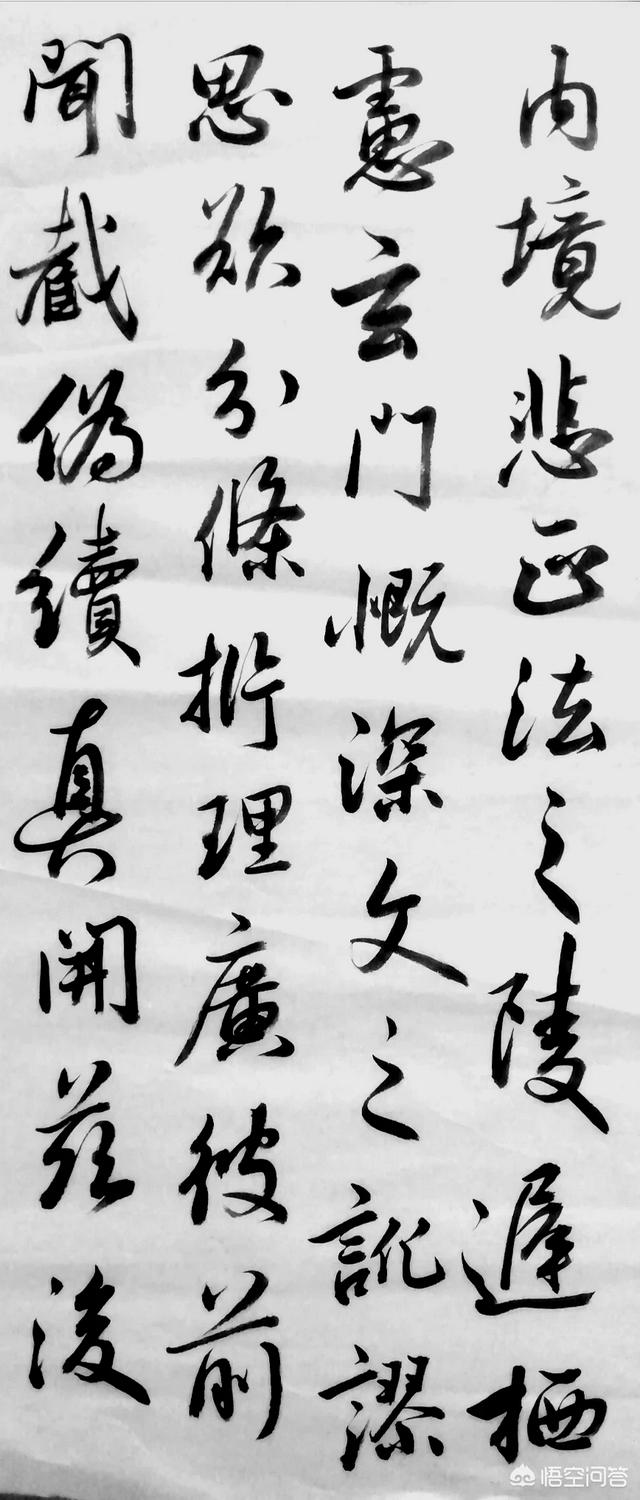 内境悲正法之陵遲栖
慮玄門慨深文之訛謬
思欲分條析理廣彼前
聞截偽續真開茲後
悟空问答